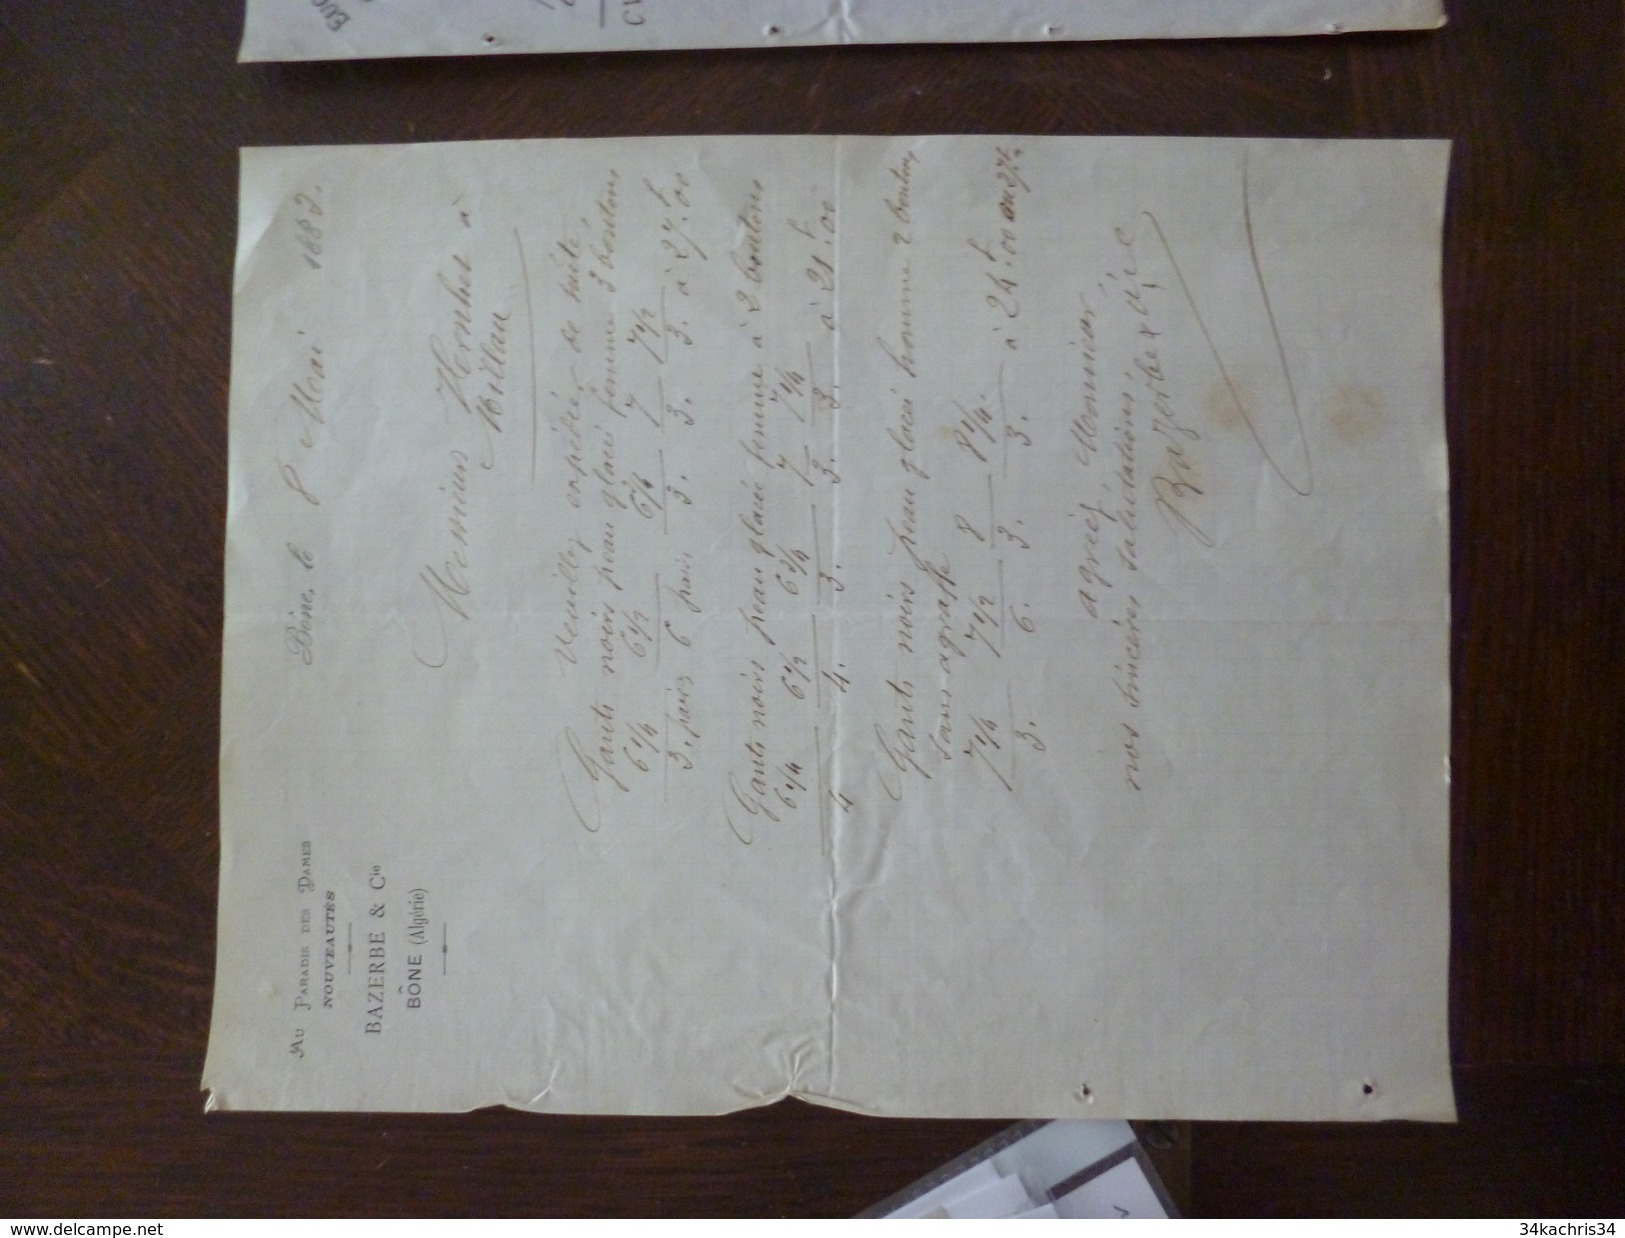 AU PARADIS DES DAMES
NOUVEAUTÉS
BAZERBE & Cie
BÔNE (Algérie)
Bône, le 8 Mai 1883.
Messieurs Hernhet à
Millau
Veuillez expédier de suite,
Gants noirs peau glacé femme 3 boutons
6 1/4 6 1/2 6 3/4 7 7 1/2
3. paires 6 paires 3. 3. 3. à 27f.00
Gants noirs peau glacé femme à 2 boutons
6 1/4 6 1/2 6 3/4 7 7 1/4
4 4. 3. 3. 3. à 21f.00
Gants noirs peau glacé homme 2 boutons
sans agraffe
7 1/4 7 1/2 8 8 1/4.
3. 6. 3. 3. à 24f.00
agréez, Monsieur,
nos sincères salutations,
Bazerbe & Cie
www.delcampe.net
34kachris34